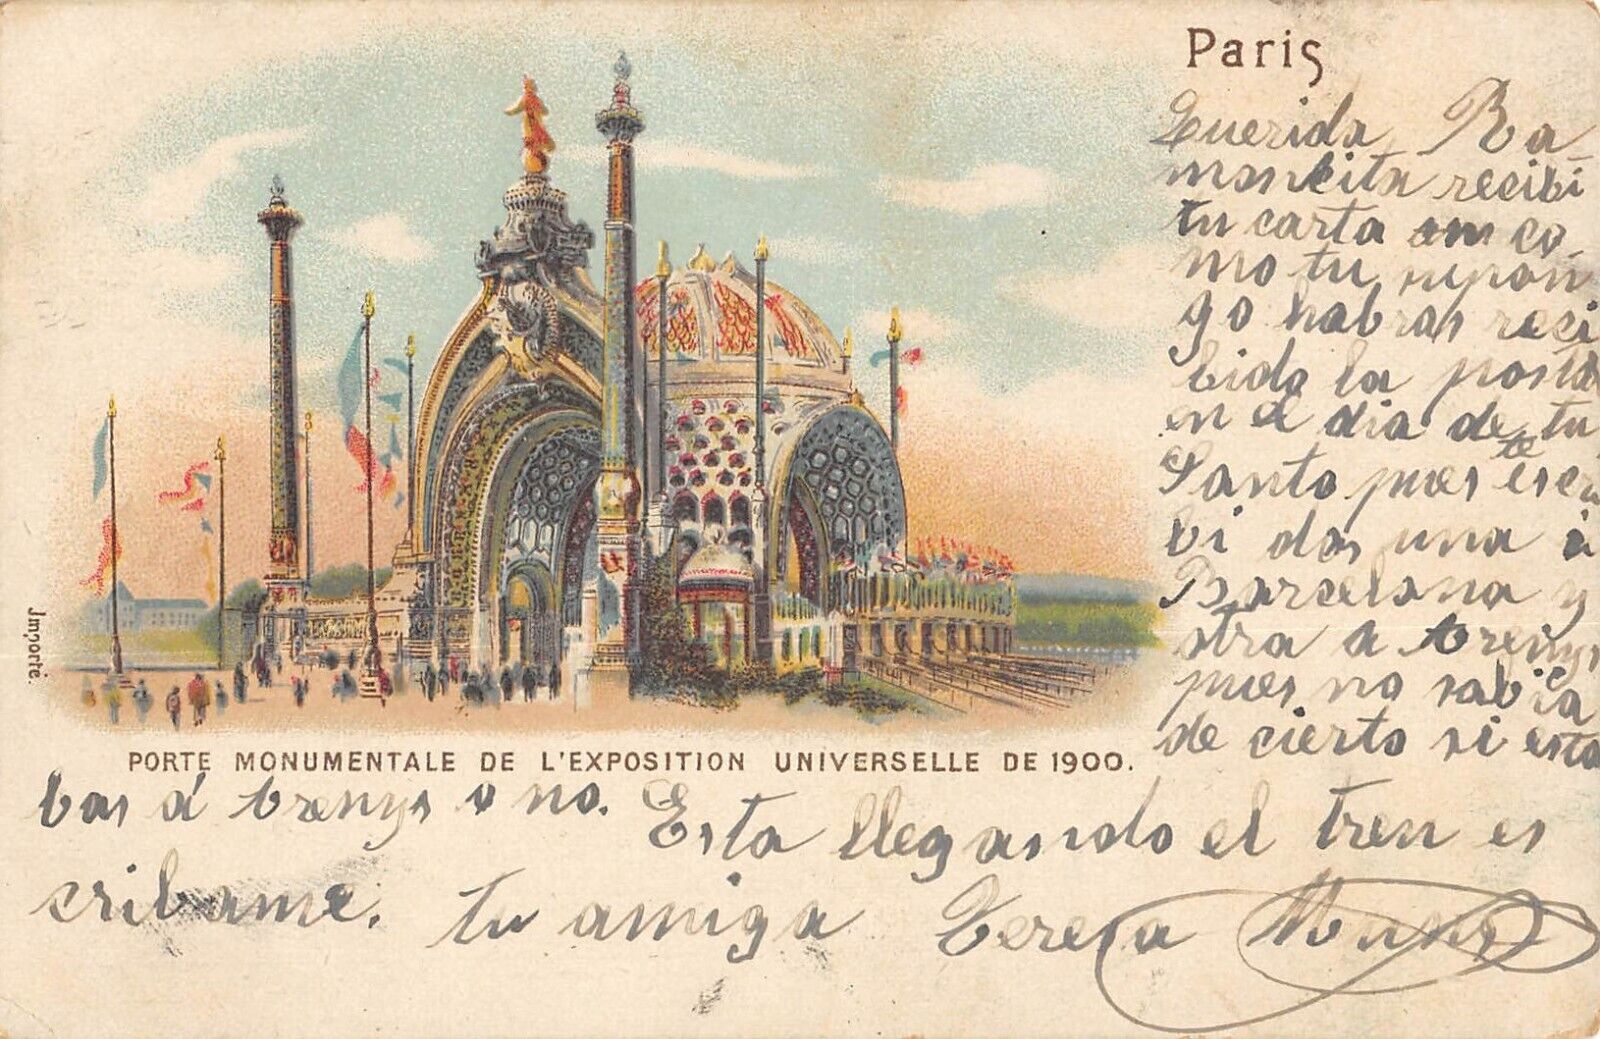 Paris
Querida Ra-
moncita recibi
tu carta asi co-
mo tu supon
go habras reci
bido la postal
en el dia de tu
te
Santo pues escri
bi dos una à
Barcelona y
otra a trenys
pues no sabia
de cierto si esta
bas á trenys o no. Esta llegando el tren es
cribame.
tu amiga Teresa
PORTE MONUMENTALE DE L'EXPOSITION UNIVERSELLE DE 1900.
Importé.